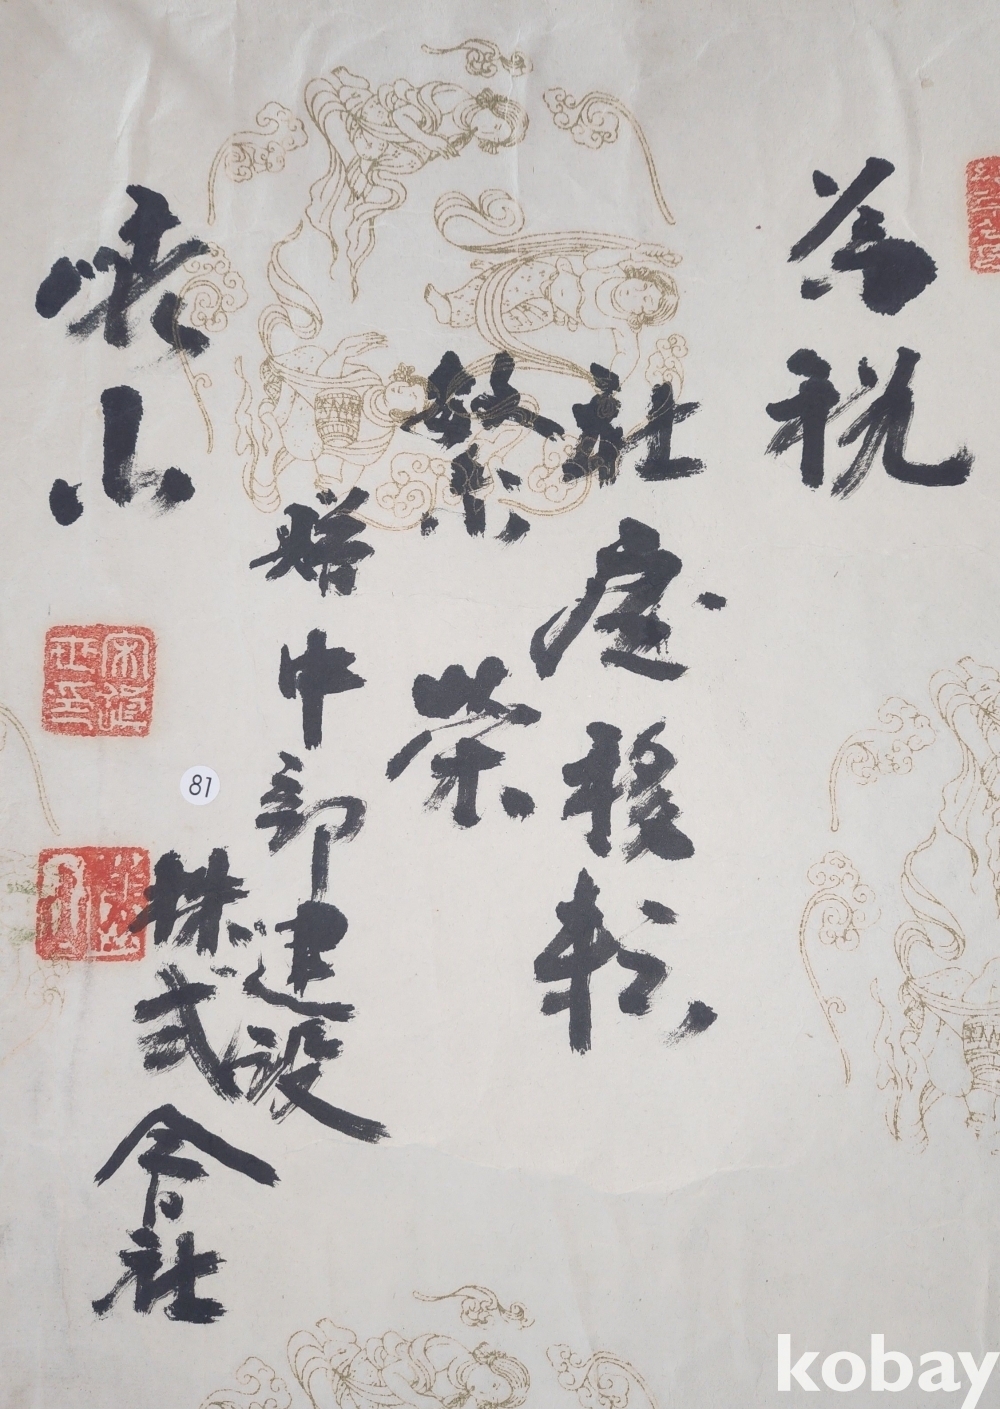 為祝
社屋移転
繁栄
贈中部建設
株式會社
山
81
kobay